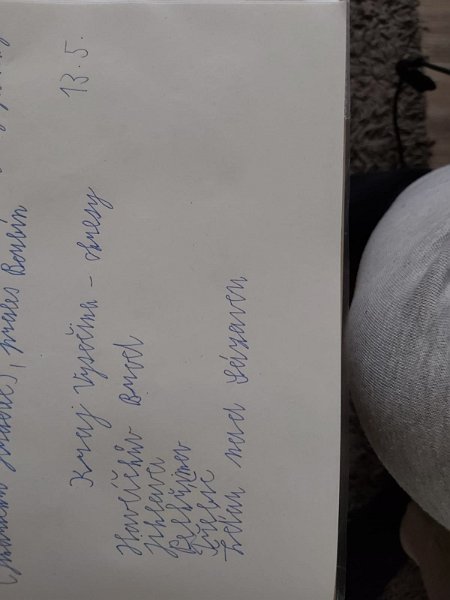 prales Boubín
Kraj Vysočina - okresy 13.5.
Havlíčkův Brod
Jihlava
Pelhřimov
Třebíč
Žďár nad Sázavou